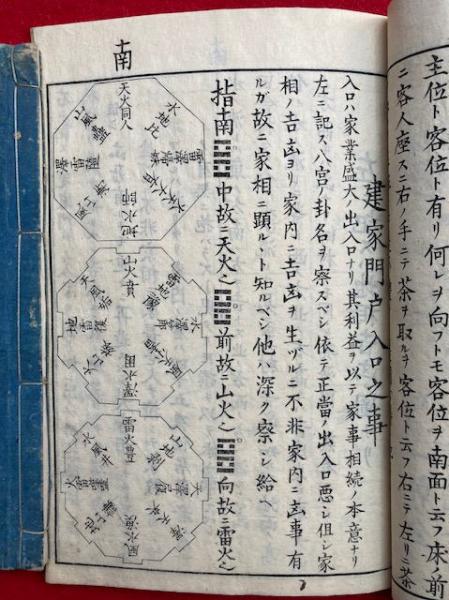 主位ト客位ト有リ何レヲ向フトモ客位ヲ南面ト云フ床ノ前
ニ客人座スニ右ノ手ニテ茶ヲ取ルヲ客位ト云フ右ニテ左リニ茶
建家門户入口之事
入口ハ家業盛大ノ出入口ナリ其利益ヲ以テ家事相続ノ本意ナリ
左ニ記ス八宮ノ卦名ヲ察スベシ依テ正當ノ出入口悪シ但シ家
相ノ吉凶ヨリ家内ニ吉凶ヲ生ヅルニ不非家内ニ凶事有
ルガ故ニ家相ニ顕ルヽト知ルベシ他ハ深ク察シ給ヘ
指南
中故ニ天火之
前故ニ山火之
向故ニ雷火之
南
天火同人
水地比
山風蠱
澤雷隨
地水師
山火賁
天風姤
地雷復
澤水困
雷火豐
山地剝
水風井
風水渙